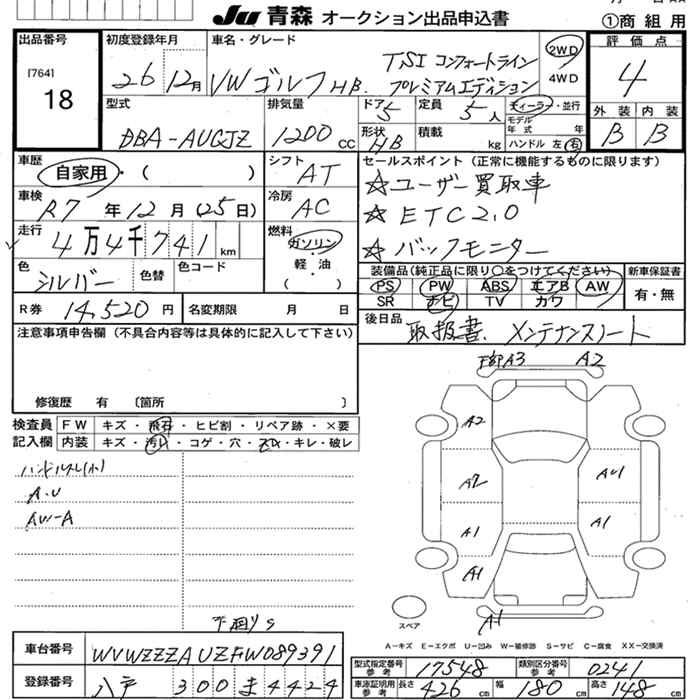 Ju 青森 オークション出品申込書
①商組用
出品番号
[764]
18
初度登録年月
26 12月
車名・グレード
VW ゴルフHB. TSI コンフォートライン
プレミアムエディション
2WD
4WD
評価点
4
外装 内装
B B
型式
DBA-AUCJZ
排気量
1200 CC
ドア 5
形状 HB
定員 5人
積載 kg
ディーラー・並行
モデル年式 年
ハンドル 左 右
車歴
自家用・( )
シフト
AT
車検
R7年12月(25日)
冷房
AC
走行
4万4千741km
燃料
ガソリン
・
軽・油
( )
色
シルバー
色替
色コード
R券 14,520円
名変期限 月 日
セールスポイント(正常に機能するものに限ります)
☆ユーザー買取車
☆ETC2.0
☆バックモニター
装備品(純正品に限り○をつけてください)
PS PW ABS エアB AW
SR ナビ TV カワ
新車保証書
有・無
後日品
取扱書. メンテナンスノート
注意事項申告欄(不具合内容等は具体的に記入して下さい)
修復歴 有 〔箇所 〕
検査員記入欄
FW キズ・飛石・ヒビ割・リペア跡・×要
内装 キズ・汚レ・コゲ・穴・スレ・キレ・破レ
ハンドルスレ(小)
A.U
AW-A
下部A3 A2
A2
A2 AU1
A1 A1
A1
A1
スペア
下回りS
A-キズ E-エクボ U-凹み W-補修跡 S-サビ C-腐食 XX-交換済
車台番号
WVWZZZAUZFW089391
登録番号
八戸 300 ま 4424
型式指定番号参考 17548
類別区分番号参考 0241
車庫証明用参考 長さ 426 cm 幅 180 cm 高さ 148 cm